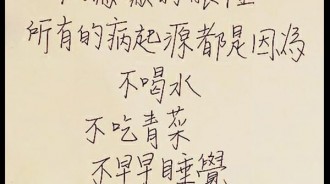 所有的病起源都是因為
不喝水
不吃青菜
不早早睡覺